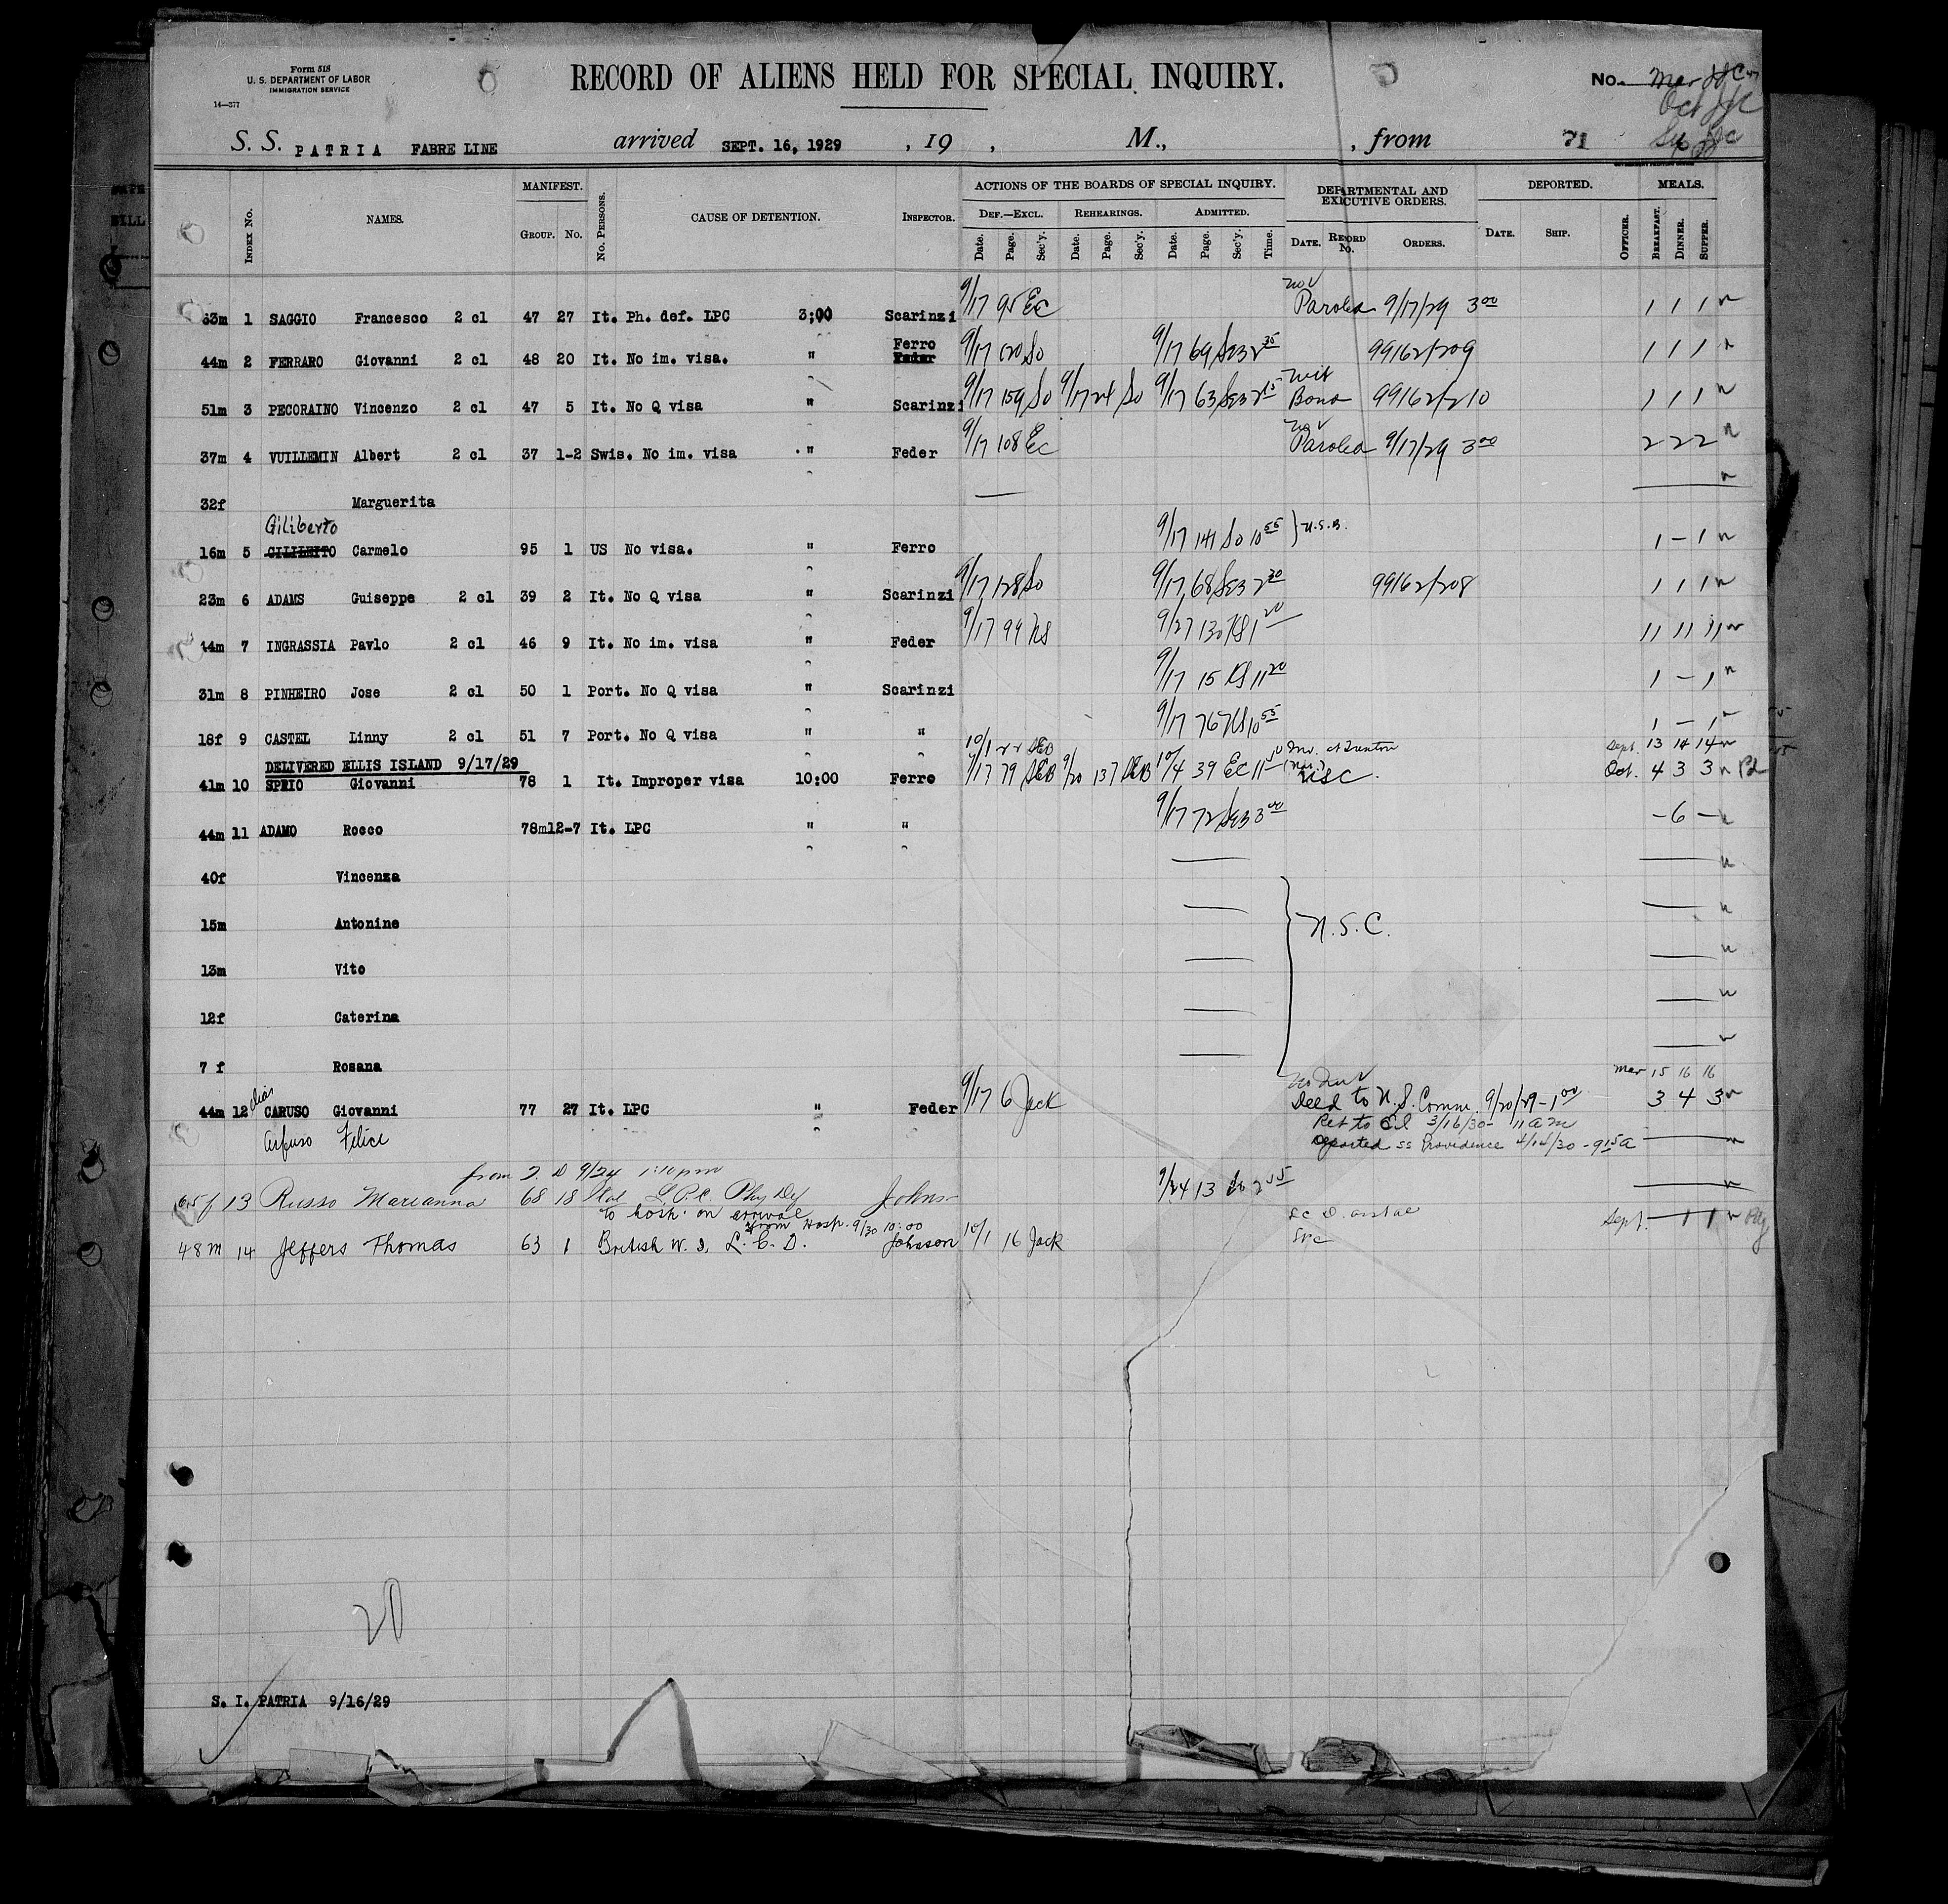 Form 518
U. S. DEPARTMENT OF LABOR
IMMIGRATION SERVICE
14—377
RECORD OF ALIENS HELD FOR SPECIAL INQUIRY.
No.
S. S. PATRIA FABRE LINE arrived SEPT. 16, 1929 , 19 , M., , from 71
MANIFEST. ACTIONS OF THE BOARDS OF SPECIAL INQUIRY. DEPARTMENTAL AND EXECUTIVE ORDERS. DEPORTED. MEALS.
Index No. NAMES. Group. No. No. Persons. CAUSE OF DETENTION. Inspector. Def.—Excl. Rehearings. Admitted.
Date. Page. Sec'y. Date. Page. Sec'y. Date. Page. Sec'y. Time. Date. Record No. Orders. Date. Ship. Officer. Breakfast. Dinner. Supper.
1 SAGGIO Francesco 2 cl 47 27 It. Ph. def. LPC 3;00 Scarinzi 9/17 95 Ec Paroled 9/17/29 3 00 1 1 1
Ferro
44m 2 FERRARO Giovanni 2 cl 48 20 It. No im. visa. " 9/17 120 So 9/17 69 SEB 2 35 99162/209 1 1 1
51m 3 PECORAINO Vincenzo 2 cl 47 5 It. No Q visa " Scarinzi 9/17 159 So 9/17 24 So 9/17 63 SEB 2 15 Bond 99162/210 1 1 1
37m 4 VUILLEMIN Albert 2 cl 37 1-2 Swis. No im. visa " Feder 9/17 108 Ec Paroled 9/17/29 3 00 2 2 2
32f Marguerita
Giliberto
16m 5 GILILETTO Carmelo 95 1 US No visa. " Ferro 9/17 141 So 10 55 1 - 1
23m 6 ADAMS Guiseppe 2 cl 39 2 It. No Q visa " Scarinzi 9/17 128 So 9/17 68 SEB 2 30 99162/208 1 1 1
44m 7 INGRASSIA Pavlo 2 cl 46 9 It. No im. visa " Feder 9/17 99 9/27 130 1 20 11 11 11
31m 8 PINHEIRO Jose 2 cl 50 1 Port. No Q visa " Scarinzi 9/17 15 11 20 1 - 1
18f 9 CASTEL Linny 2 cl 51 7 Port. No Q visa " " 9/17 10 55 1 - 1
DELIVERED ELLIS ISLAND 9/17/29 10/1 22 SEB Sept. 13 14 14
41m 10 SPEIO Giovanni 78 1 It. Improper visa 10:00 Ferro 9/17 79 SEB 9/20 137 SEB 10/4 39 EC Oct. 4 3 3
44m 11 ADAMO Rocco 78m12-7 It. LPC " " 9/17 72 SEB 3 00 - 6 -
40f Vincenza
15m Antonine
N.S.C.
13m Vito
12f Caterina
7 f Rosana
Mar 15 16 16
alias
44m 12 CARUSO Giovanni 77 27 It. LPC " Feder 9/17 6 Jack Deed to N.S. Comm. 9/20/29 - 1 00 3 4 3
Ret to E.I. 3/16/30 - 11 am
Felice
Deported SS Providence 4/14/30 - 9 15 a
from T. D 9/24 1:10 pm
65f 13 Russo Marianna 68 18 Ital L.P.C. Phy Def Johns 9/24 13 So 2 55
to hosp. on arrival
from Hosp. 9/30 10:00
48m 14 Jeffers Thomas 63 1 British W. I. L. C. D. Johnson 10/1 16 Jack Sept. - 1 1
20
S. I. PATRIA 9/16/29